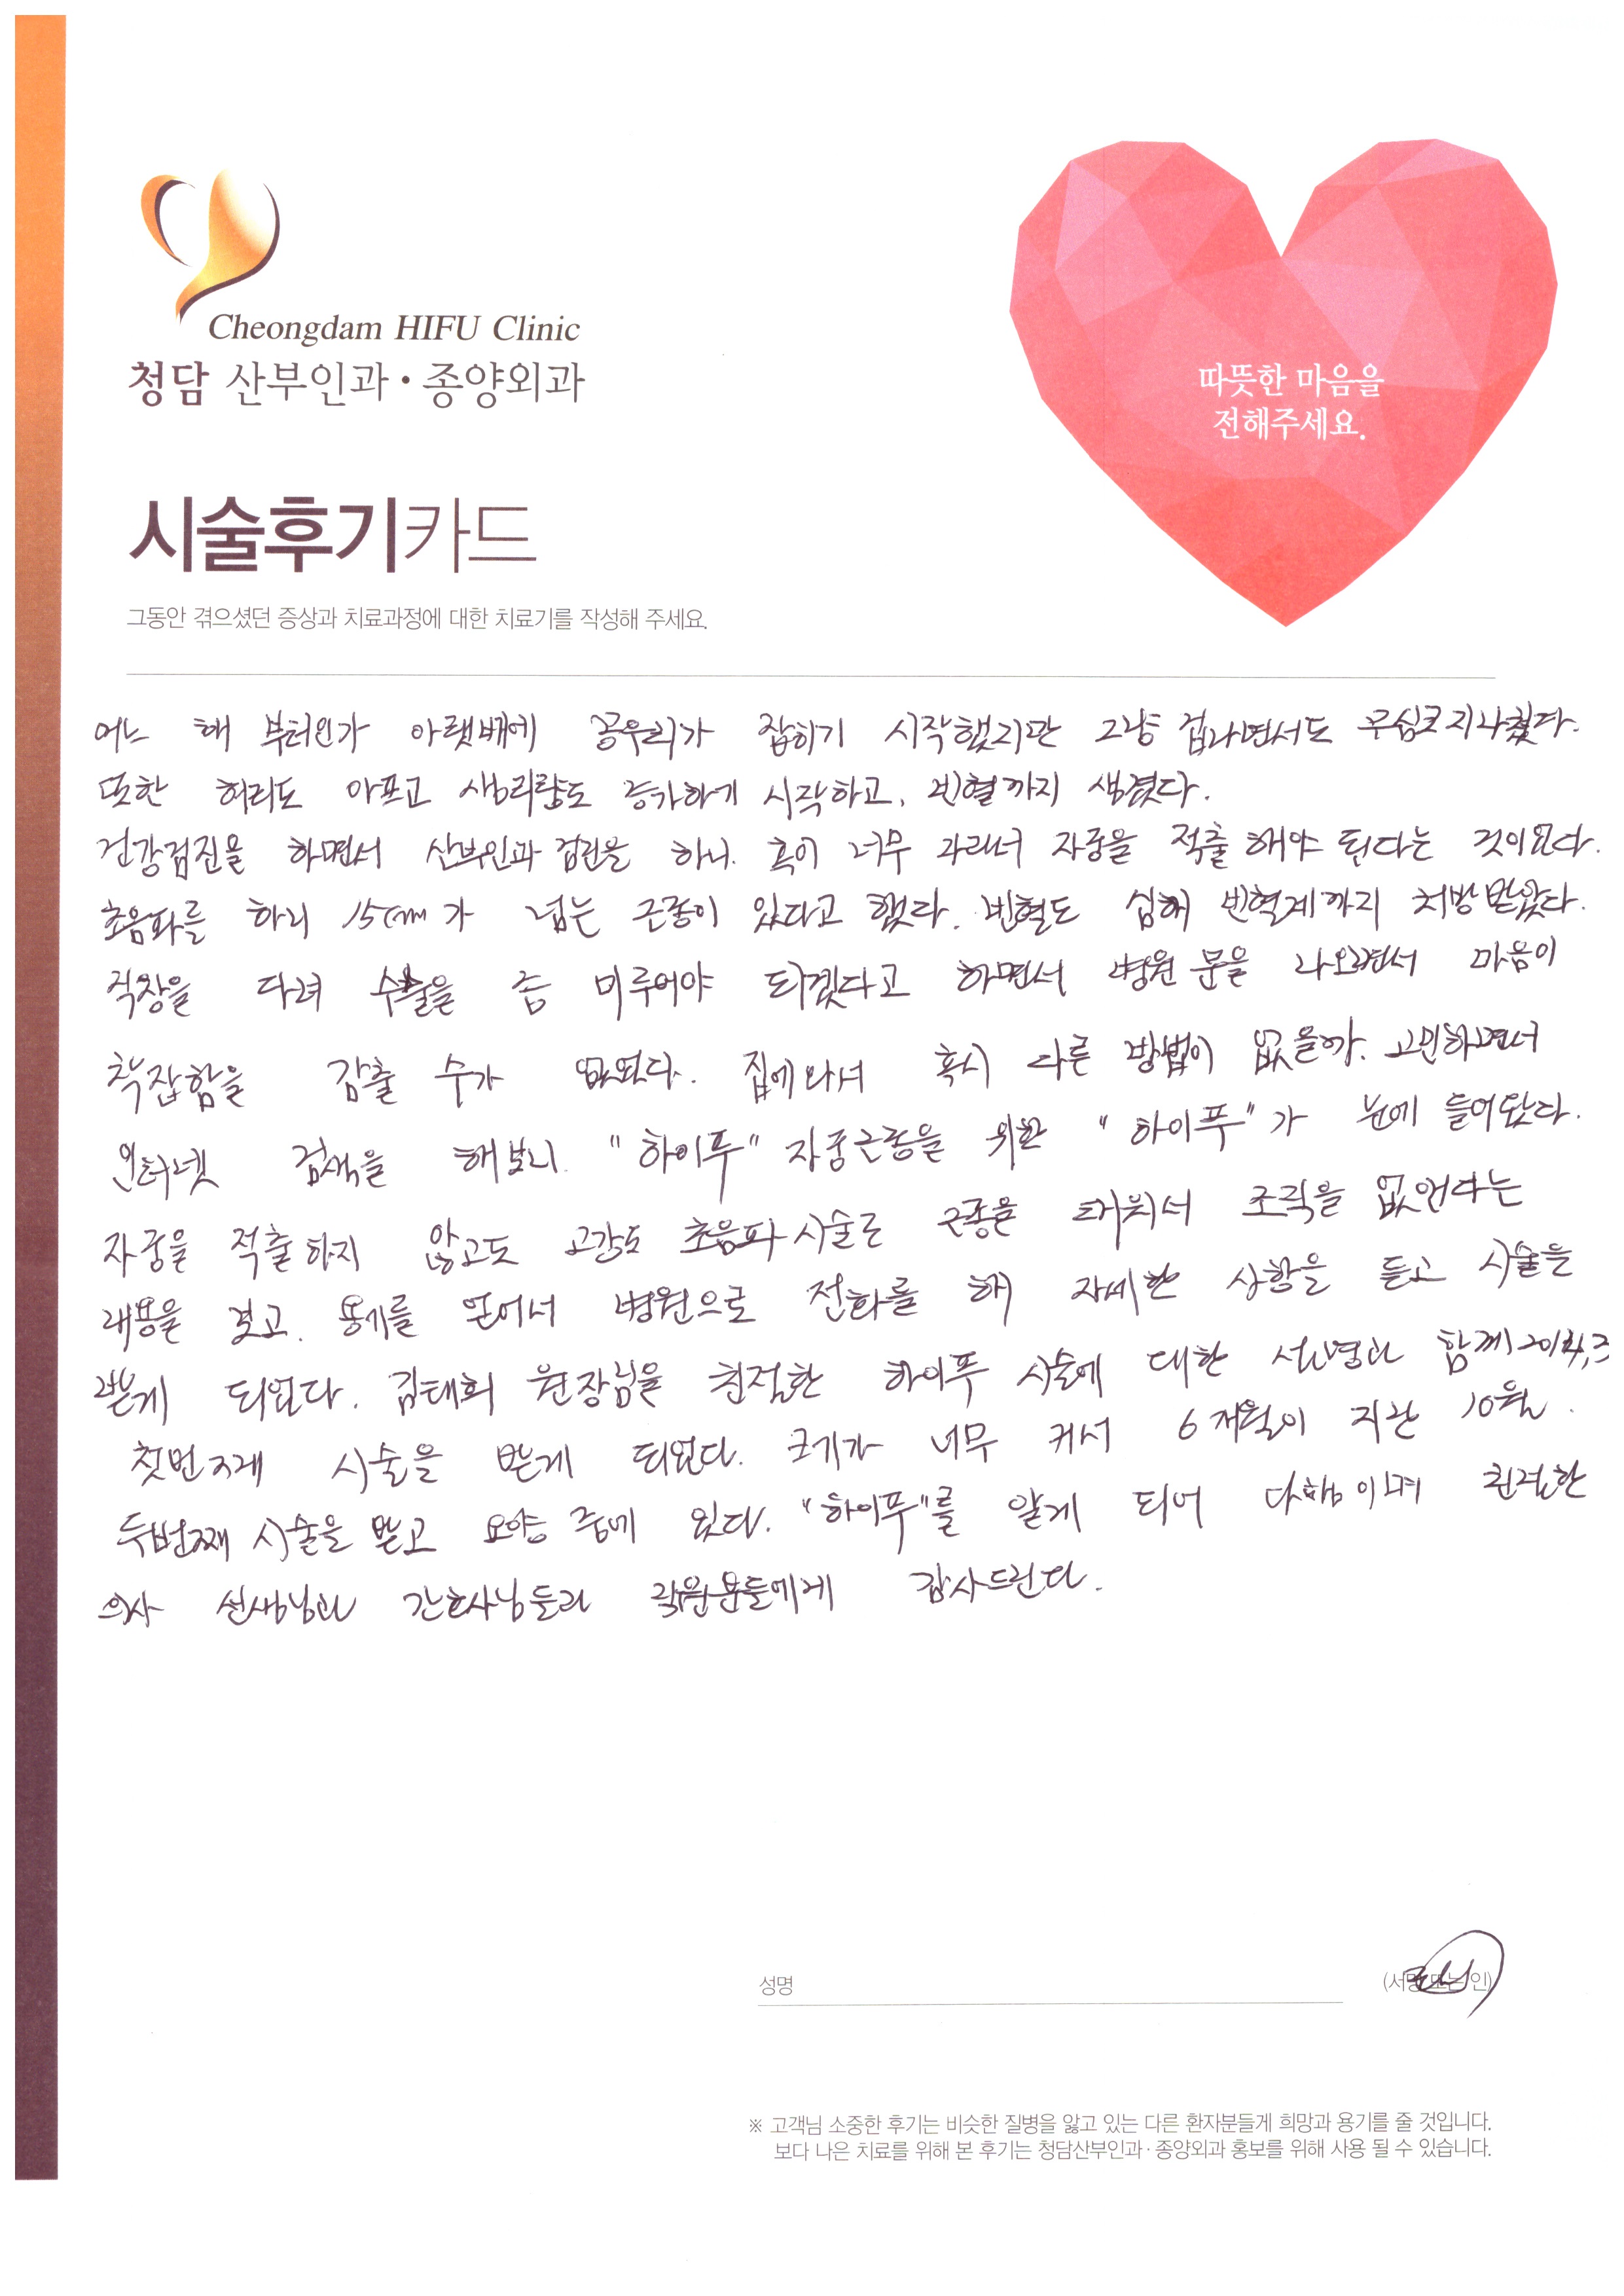 Cheongdam HIFU Clinic
청담 산부인과·종양외과
따뜻한 마음을
전해주세요.
시술후기카드
그동안 겪으셨던 증상과 치료과정에 대한 치료기를 작성해 주세요.
어느 해 부터인가 아랫배에 몽우리가 잡히기 시작했지만 그냥 겁나면서도 무심코지나쳤다.
또한 허리도 아프고 생리량도 증가하게 시작하고, 빈혈까지 생겼다.
건강검진을 하면서 산부인과 검진을 하니. 혹이 너무 자라서 자궁을 적출해야 된다는 것이였다.
초음파를 하니 15cm가 넘는 근종이 있다고 했다. 빈혈도 심해 빈혈제까지 처방받았다.
직장을 다녀 수술을 좀 미루어야 되겠다고 하면서 병원문을 나오면서 마음이
착잡함을 감출 수가 없었다. 집에와서 혹시 다른 방법이 없을까. 고민하면서
인터넷 검색을 해보니. "하이푸" 자궁근종을 위한 "하이푸"가 눈에 들어왔다.
자궁을 적출하지 않고도 고강도 초음파시술로 근종을 태워서 조직을 없앤다는
내용을 보고. 용기를 얻어서 병원으로 전화를 해 자세한 상황을 듣고 시술을
받게 되었다. 김태희 원장님을 친절한 하이푸 시술에 대한 설명과 함께 2014,3
첫번째 시술을 받게 되었다. 크기가 너무 커서 6개월이 지난 10월.
두번째 시술을 받고 요양 중에 있다. "하이푸"를 알게 되어 다행이며 친절한
의사 선생님과 간호사님들과 분들에게 감사드린다.
성명
(서명 또는 인)
※ 고객님 소중한 후기는 비슷한 질병을 앓고 있는 다른 환자분들게 희망과 용기를 줄 것입니다.
보다 나은 치료를 위해 본 후기는 청담산부인과·종양외과 홍보를 위해 사용 될 수 있습니다.